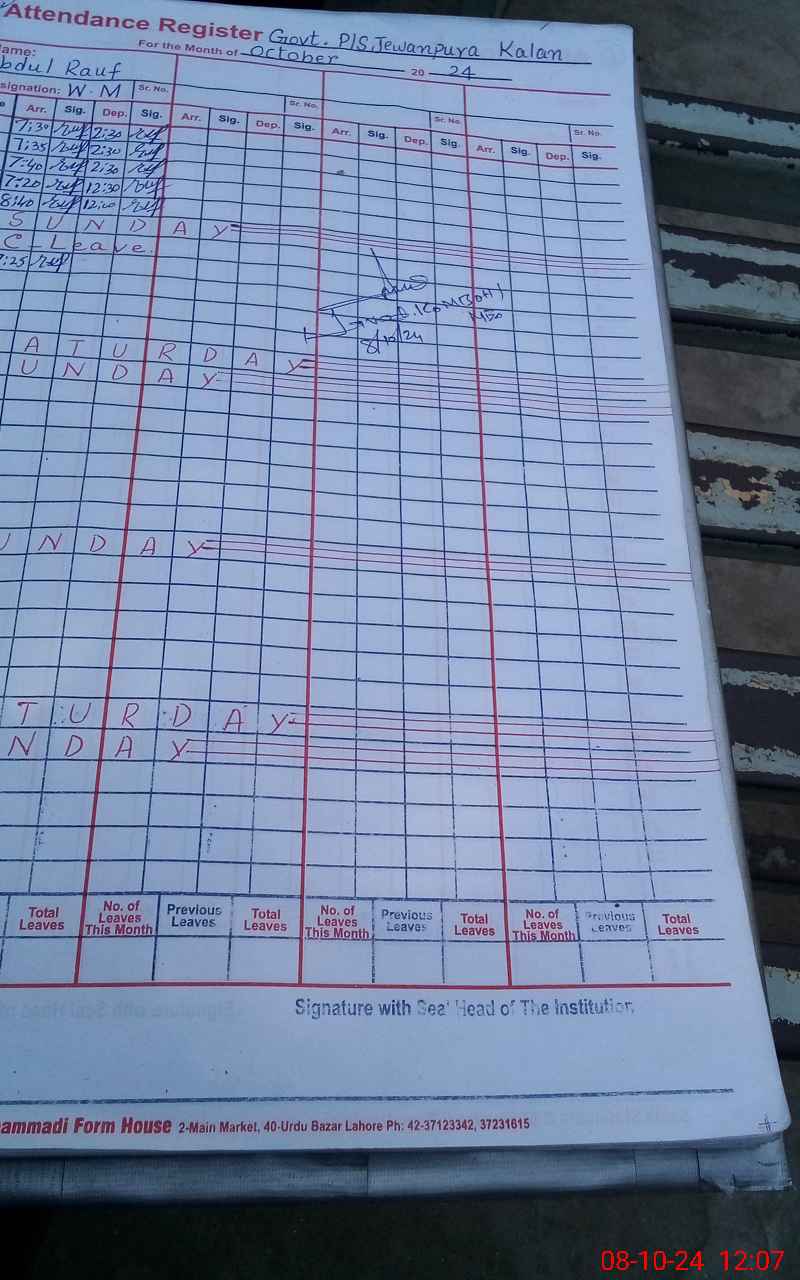 Attendance Register Govt. P/S, Jewanpura Kalan
For the Month of October 20 24
ame:
bdul Rauf
signation: W.M Sr. No. Sr. No. Sr. No. Sr. No.
Arr. Sig. Dep. Sig. Arr. Sig. Dep. Sig. Arr. Sig. Dep. Sig. Arr. Sig. Dep. Sig.
7:30 2:30
7:35 2:30
7:40 2:30
7:20 12:30
8:40
SUNDAY
C-Leave.
7:25
8/10/24
ATURDAY
UNDAY
UNDAY
TURDAY
NDAY
Total Leaves No. of Leaves This Month Previous Leaves Total Leaves No. of Leaves This Month Previous Leaves Total Leaves No. of Leaves This Month Previous Leaves Total Leaves
Signature with Seal Head of The Institution
ammadi Form House 2-Main Market, 40-Urdu Bazar Lahore Ph: 42-37123342, 37231615
08-10-24 12:07